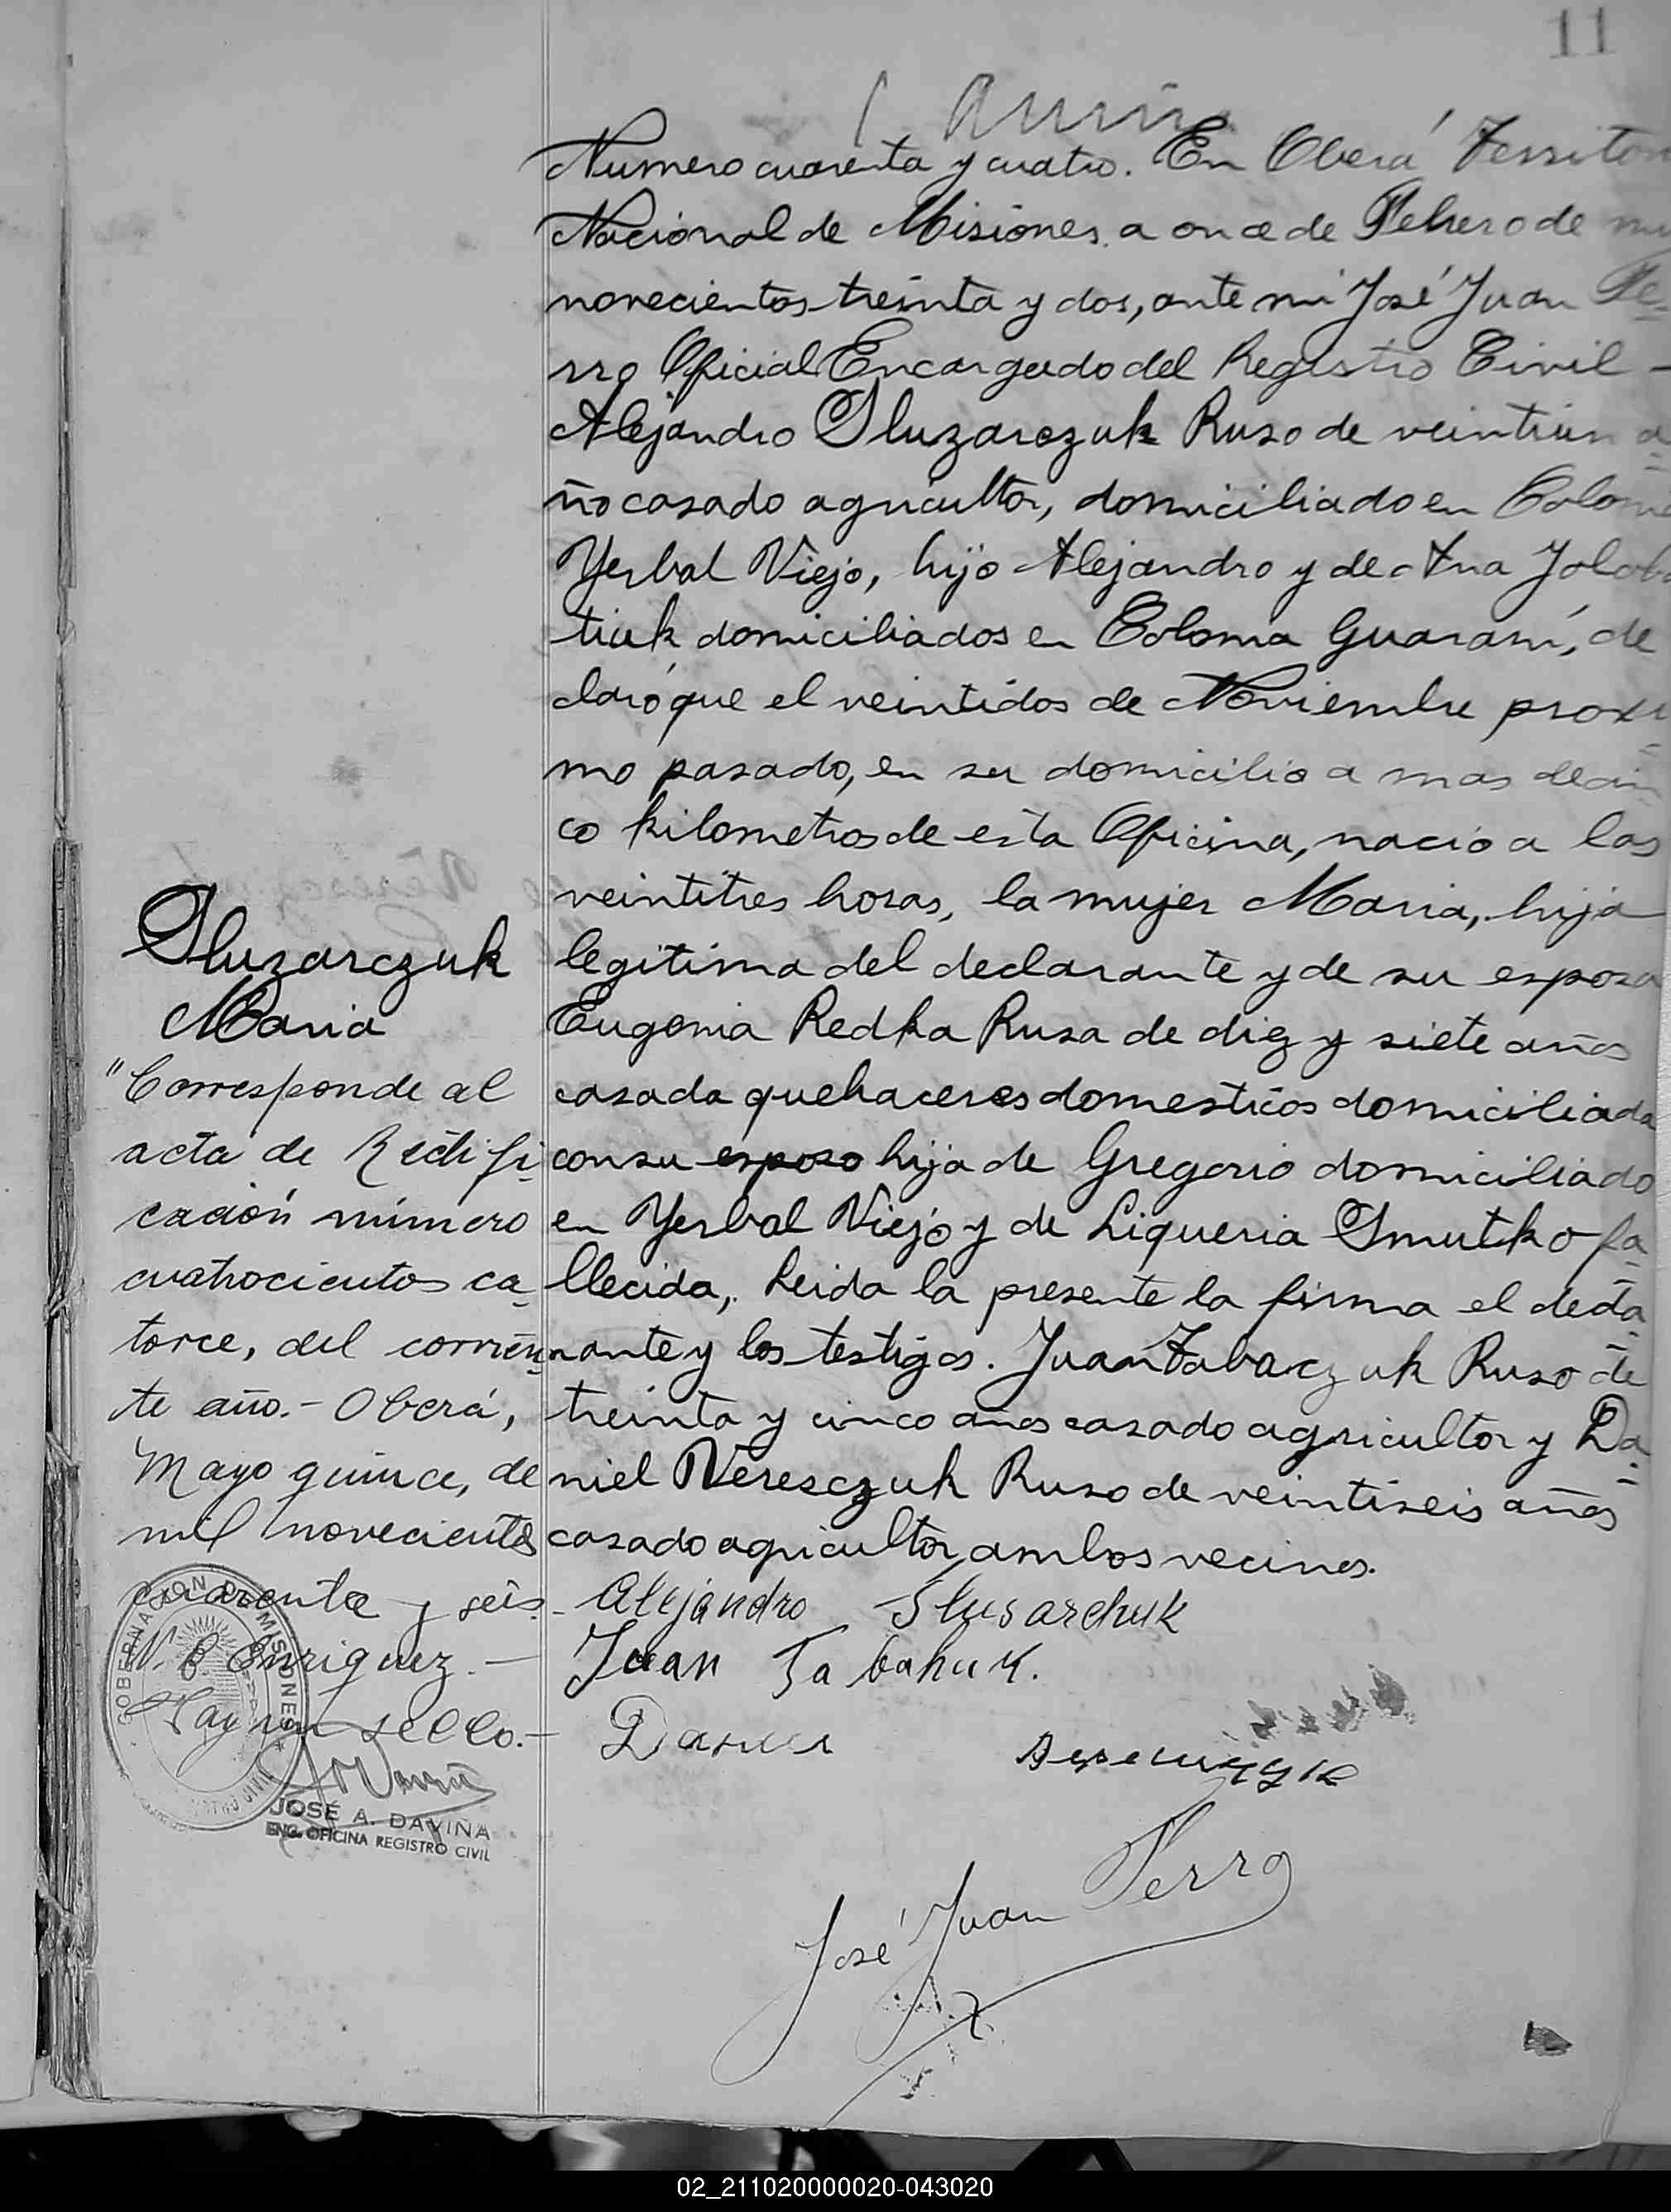 11
Numero cuarenta y cuatro. En Oberá Territorio
Nacional de Misiones a once de Febrero de mil
novecientos treinta y dos, ante mi José Juan Fe=
rro Oficial Encargado del Registro Civil -
Alejandro Sluzarczuk Ruso de veintiun a=
ño casado agricultor, domiciliado en Colonia
Yerbal Viejo, hijo Alejandro y de Ana Jolob
tiuk domiciliados en Colonia Guaraní, de
claró que el veintidos de Noviembre proxi=
mo pasado, en su domicilio a mas de cin
co kilometros de esta Oficina, nacio a las
veintitres horas, la mujer Maria, hija
legitima del declarante y de su esposa
Eugenia Redka Rusa de diez y siete años
casada quehaceres domesticos domiciliada
con su esposo hija de Gregorio domiciliado
en Yerbal Viejo y de Liqueria Smutko fa=
llecida, Leida la presente la firma el decla=
rante y los testigos. Juan Tabaczuk Ruso de
treinta y cinco años casado agricultor y Da=
niel Veresczuk Ruso de veintiseis años
casado agricultor, ambos vecinos.
Alejandro Slusarchuk
Juan Tabahuk.
José Juan Ferro
Sluzarczuk
Maria
"Corresponde al
acta de Rectifi-
cación número
cuatrocientos ca=
torce, del corrien=
te año.- Oberá,
Mayo quince, de
mil novecientos
cuarenta y seis.-
N. C. Enriquez.-
Hay un sello.-
GOBERNACION DE MISIONES
JOSÉ A. DAVIÑA
ENC. OFICINA REGISTRO CIVIL
02_211020000020-043020